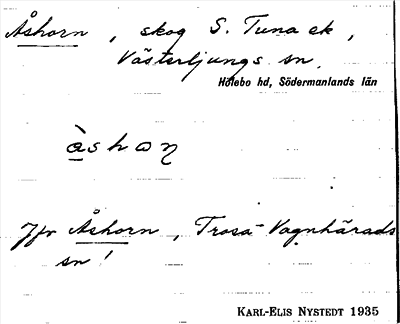 Åshorn, skog S. Tuna ek,
Västerljungs sn.
Hölebo hd, Södermanlands län
Jfr Åshorn, Trosa-Vagnhärads
sn!
KARL-ELIS NYSTEDT 1935